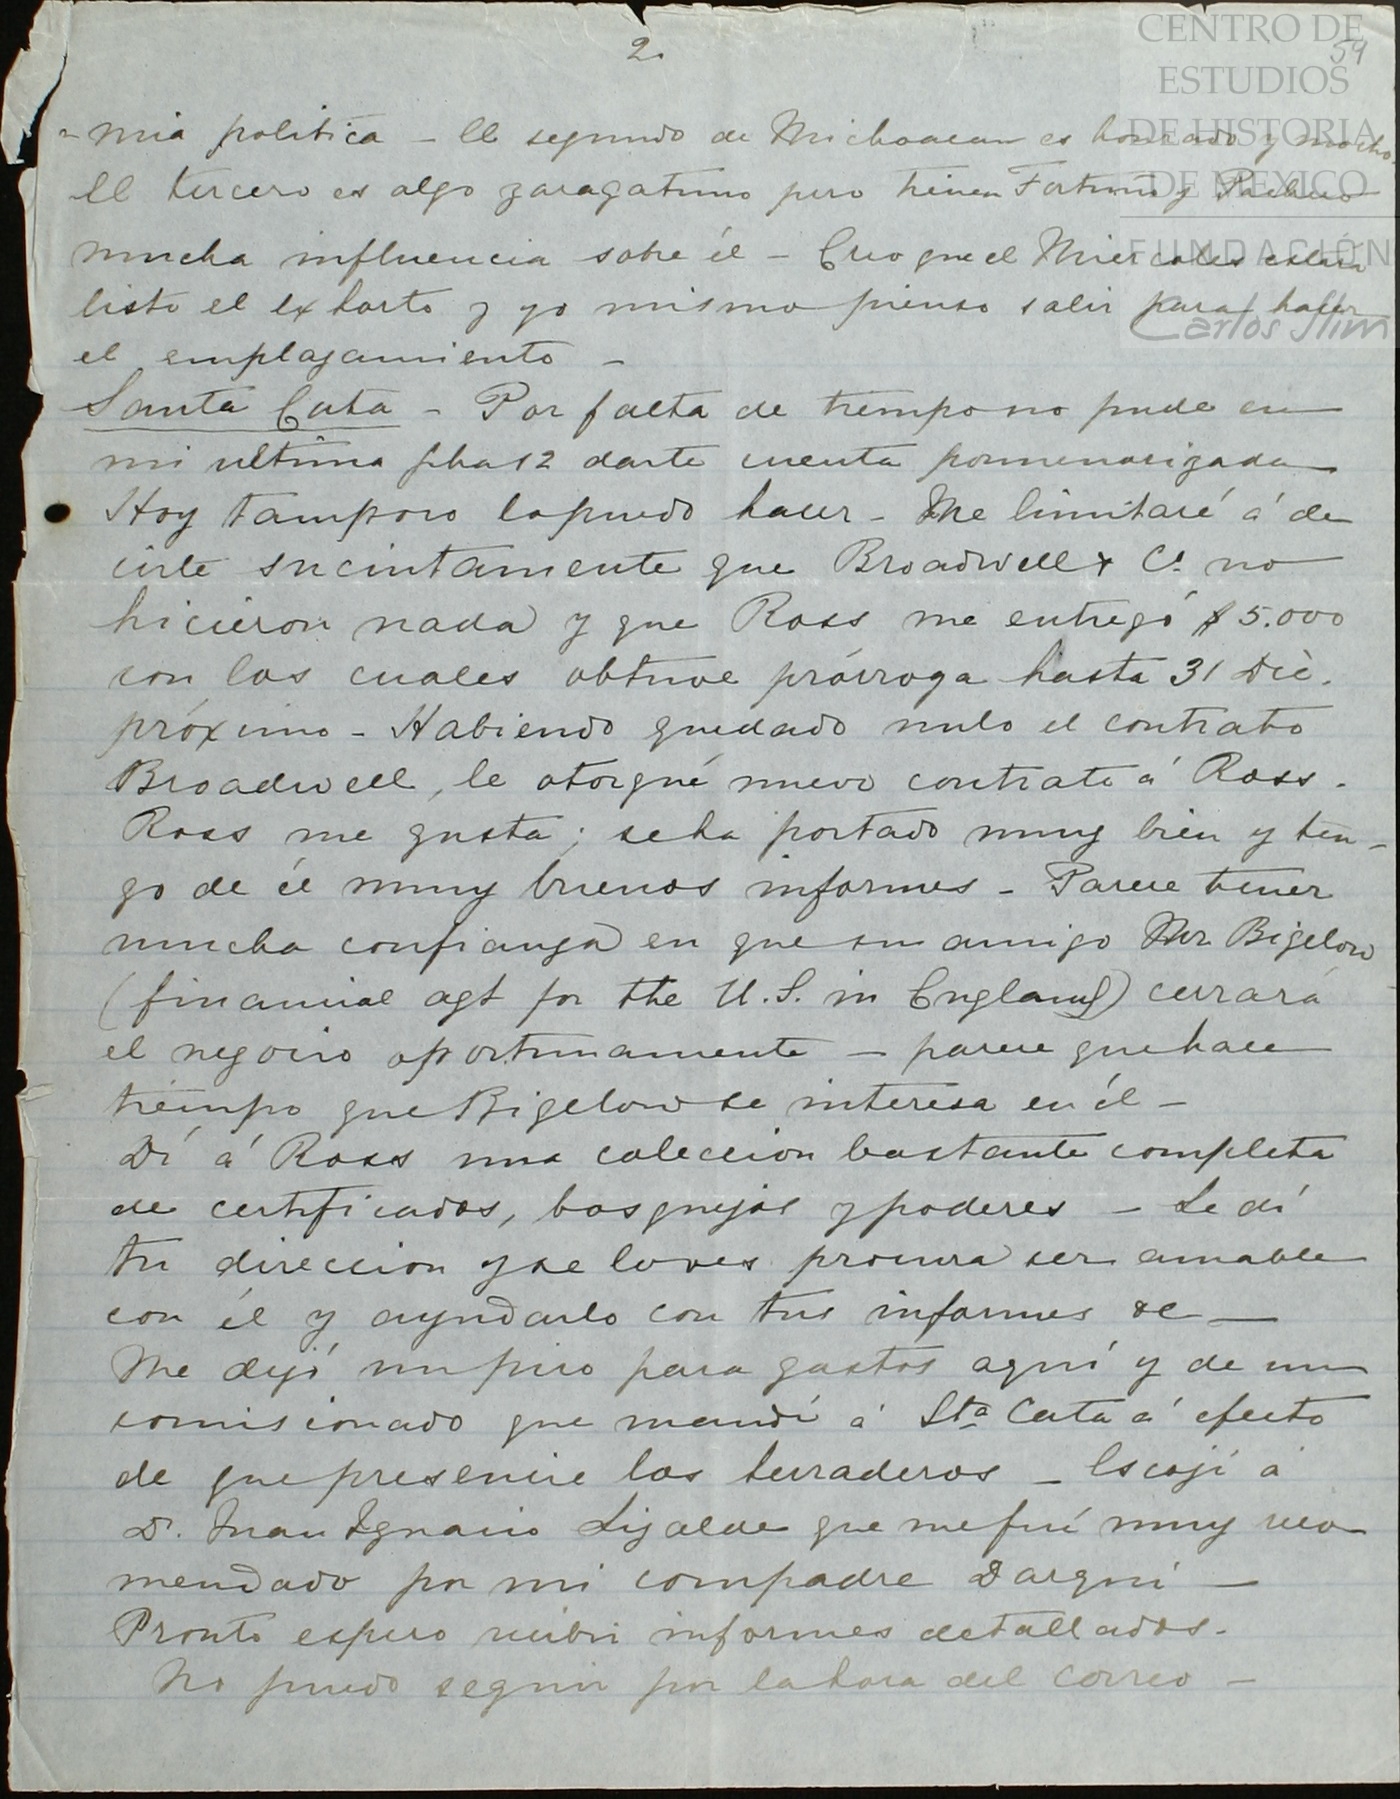 2.
59
CENTRO DE
ESTUDIOS
DE HISTORIA
DE MEXICO
FUNDACIÓN
Carlos Slim
- mia politica - El segundo de Michoacan es honrado y mocho.
El tercero es algo zaragatuno pero tienen Fortuno y Pacheco
mucha influencia sobre él - Creo que el Miercoles estará
listo el exhorto y yo mismo pienso salir para hacer
el emplazamiento -
Santa Cata - Por falta de tiempo no pude en
mi ultima fha 12 darte cuenta pormenorizada
Hoy tampoco lo puedo hacer - Me limitaré á de
cirte sucintamente que Broadwell & Cª no
hicieron nada y que Ross me entregó $5.000
con los cuales obtuve prórroga hasta 31 Dic.
próximo - Habiendo quedado nulo el contrato
Broadwell, le otorgué nuevo contrato á Ross.
Ross me gusta; se ha portado muy bien y ten-
go de él muy buenos informes - Parece tener
mucha confianza en que su amigo Mr Bigelow
(financial agt for the U.S. in England) cerrará
el negocio oportunamente - parece que hace
tiempo que Bigelow se interesa en él -
Dí á Ross una coleccion bastante completa
de certificados, bosquejos y poderes - Le dí
tu direccion y se lo ves procura ser amable
con él y ayudarlo con tus informes &c -
Me dejó un pico para gastos aquí y de un
comisionado que mandé á Stª Cata á efecto
de que presencie los herraderos - Escojí á
D. Juan Ignacio Lizalde que me fué muy reco
mendado por mi compadre Darqui -
Pronto espero recibir informes detallados.
No puedo seguir por la hora del correo -